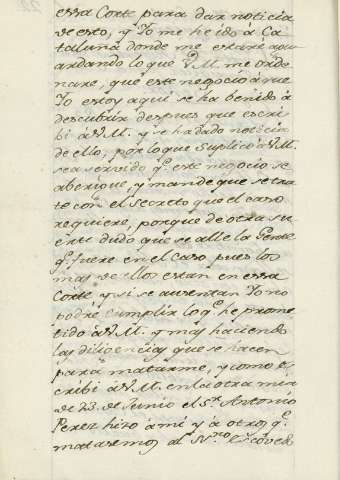 essa Corte para dar noticia
de esto, y Yo me he ido à Ca
taluña donde me estaré agu
ardando lo que V.M. me orde
nare, que este negocio à que
Yo estoy aqui se ha benido à
descubrir despues que escri
bi à V.M. y se ha dado noticia
de ello, por lo que suplico à V.M.
sea servido q.e este negocio se
aberigue, y mande que se tra
te con el secreto que el caso
requiere, porque de otra su
erte dudo que se alle la Gente
q.e fuere en el caso pues los
mas de ellos estan en essa
Corte y si se ausentan Yo no
podré cumplir lo q.e he prome
tido à V.M. y mas haciendo
las diligencias que se hacen
para matarme, y como es
cribi à V.M. en la otra mia
de 23. de Junio el S.r Antonio
Perez hizo à mi y à otros q.e
matasemos al